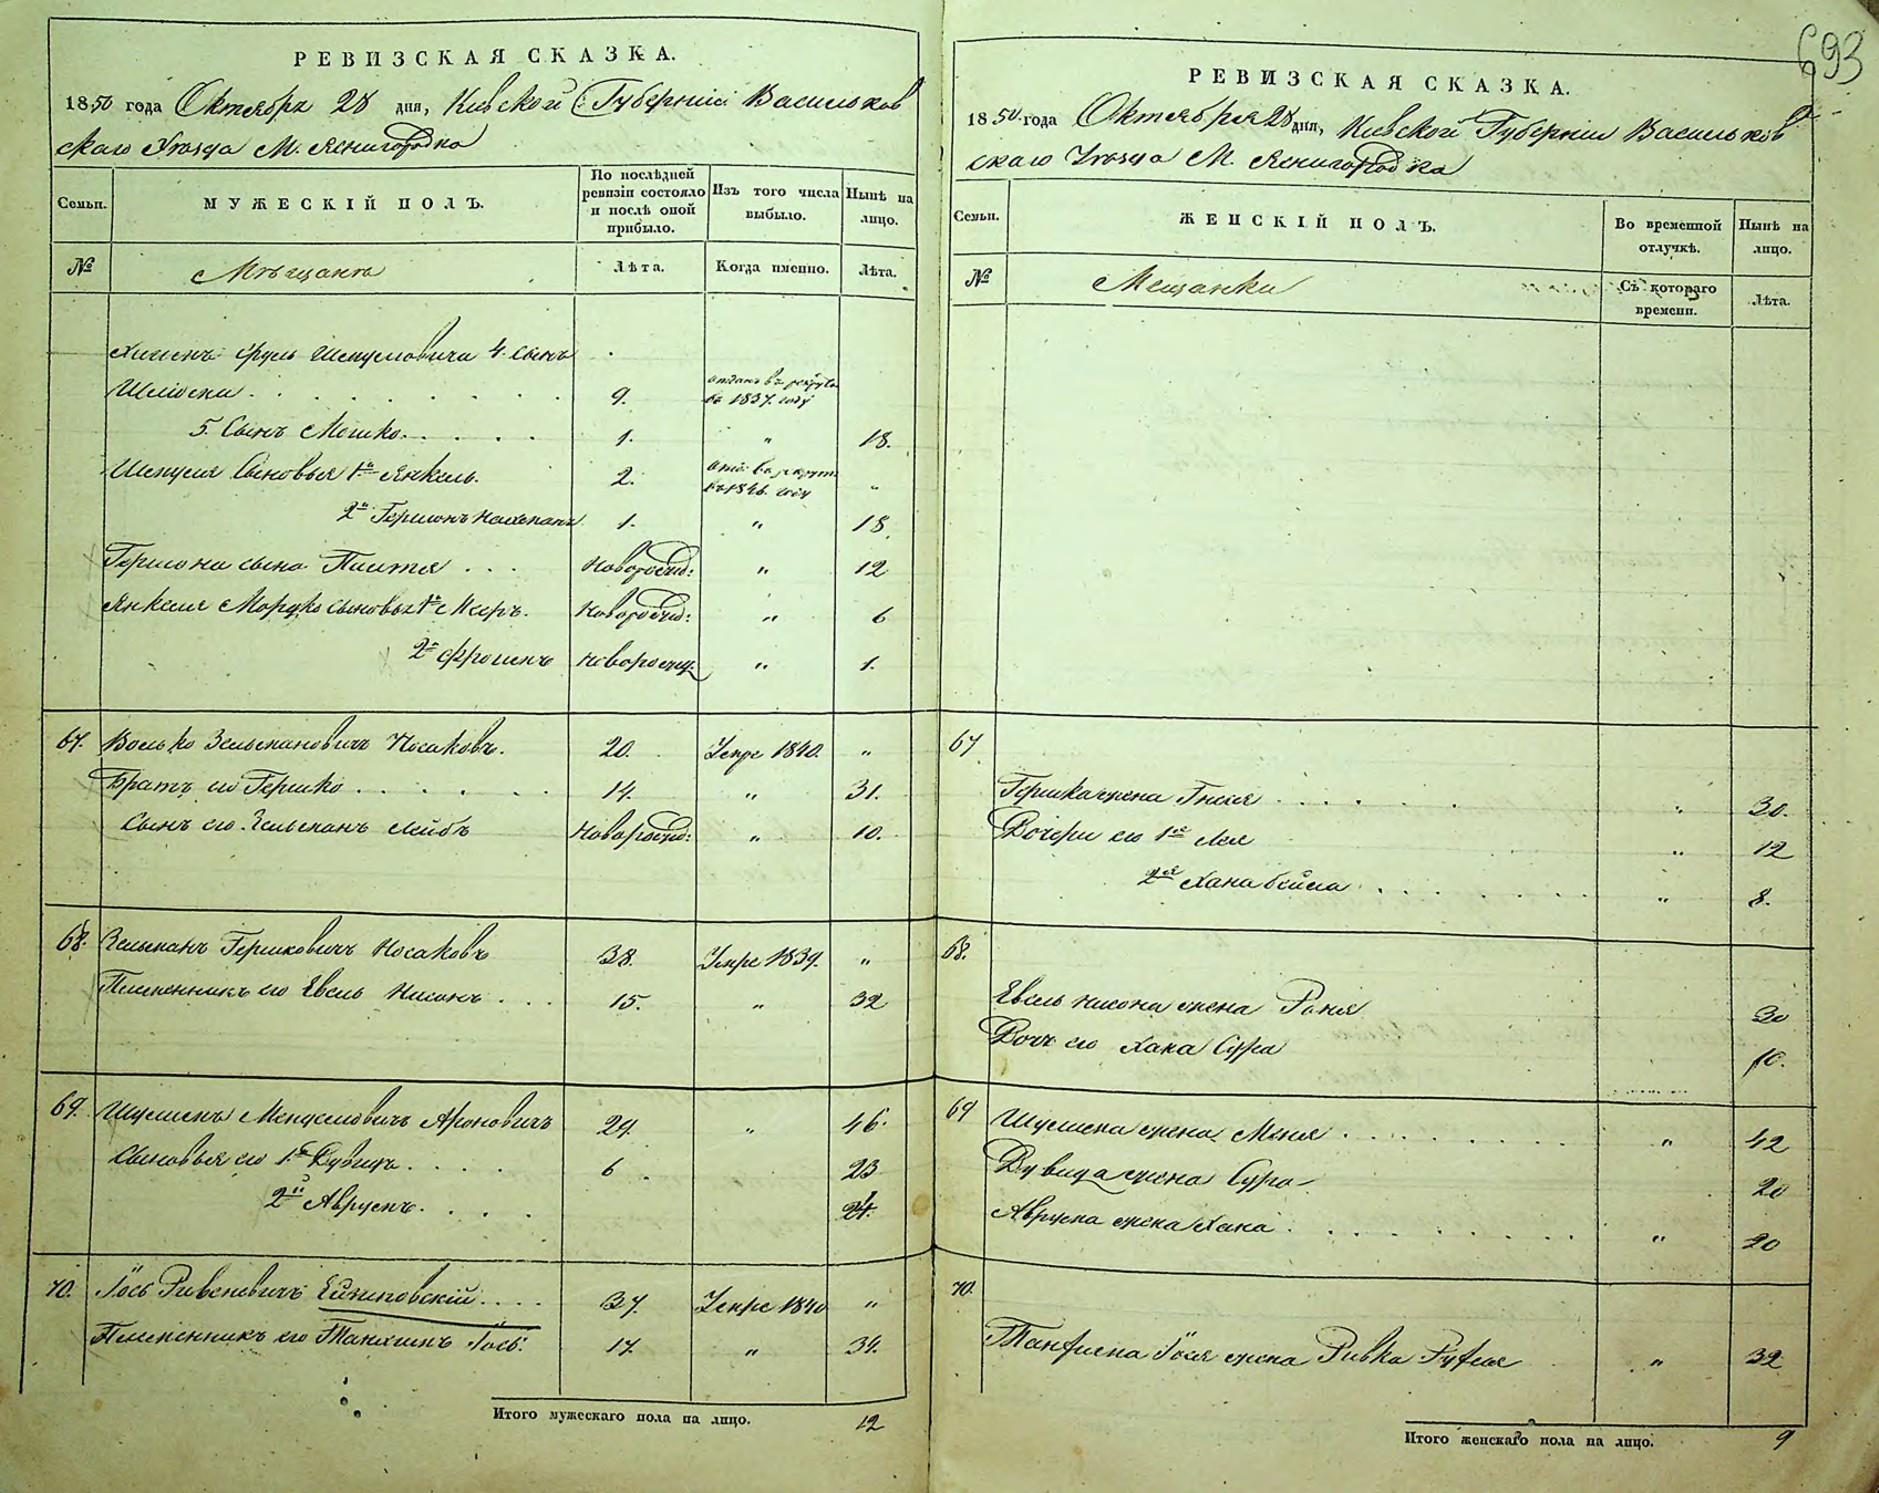 РЕВИЗСКАЯ СКАЗКА.
1850 года Октября 28 дня, Киевской Губерніи Васильков
скаго Уезда М. Ясногородка
Семьи.
МУЖЕСКІЙ ПОЛЪ.
По послѣдней ревизіи состояло и послѣ оной прибыло.
Изъ того числа выбыло.
Нынѣ на лицо.
№
Мѣщане
Лѣта.
Когда именно.
Лѣта.
Сруль 4. сынъ
9. отданъ въ рекруты въ 1837. году
5. Сынъ Мошко. 1. " 18.
Сыновья 1й Янкель. 2. отд: въ рекруты въ 1846. году "
2й Гершонъ 1. " 18.
Гершона сынъ новорожд: " 12
Янкеля Мордко сыновья 1й Мееръ. новорожд: " 6
2й Фроимъ новорожд. " 1.
67. Волько Зельмановичъ Носаковъ. 20. Умре 1840. "
Братъ его Гершко 14. " 31.
Сынъ его Зельманъ Лейбъ новорожд: " 10.
68. Зельманъ Гершковичъ Носаковъ 38. Умре 1839. "
Племенникъ его Евель Нисонъ 15. " 32
69. Менделовичъ Ароновичъ 29. " 46.
Сыновья его 1й Дувидъ 6. 23
2й Аврумъ
70. Іось 37. Умре 1840 "
Племенникъ его Іось. 17. " 34.
Итого мужескаго пола на лицо. 12
693
РЕВИЗСКАЯ СКАЗКА.
1850 года Октября 28 дня, Киевской Губерніи Васильков
скаго Уезда М. Ясногородка
Семьи.
ЖЕНСКІЙ ПОЛЪ.
Во временной отлучкѣ.
Нынѣ на лицо.
№
Мещанки
Съ котораго времени.
Лѣта.
67
Гершка жена " 30.
Дочери его 1я Лея " 12
2я Хана Бейла " 8.
68.
Евель Нисона жена 30
Дочь его Хана Сура 10.
69 жена Меня " 42
Дувида жена Сура 20
Аврума жена Хана " 20
70.
жена Ривка " 32
Итого женскаго пола на лицо. 9